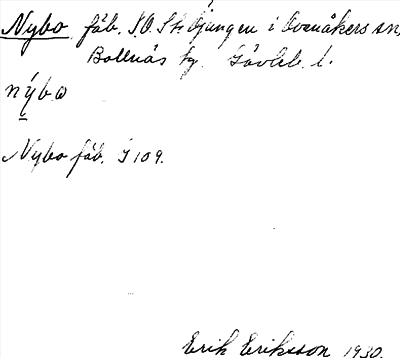 Nybo fäb. S.O. St. Öjungen i Ovanåkers sn,
Bollnäs tg. Gävleb. l.
nybo
Nybo fäb. J 109.
Erik Eriksson 1930.